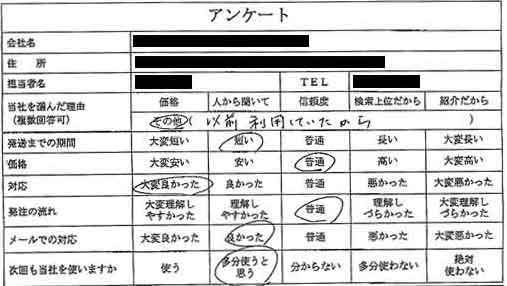 アンケート
会社名
住 所
担当者名 TEL
当社を選んだ理由 (複数回答可) 価格 人から聞いて 信頼度 検索上位だから 紹介だから
その他( 以前 利用していたから )
発送までの期間 大変短い 短い 普通 長い 大変長い
価格 大変安い 安い 普通 高い 大変高い
対応 大変良かった 良かった 普通 悪かった 大変悪かった
発注の流れ 大変理解しやすかった 理解しやすかった 普通 理解しづらかった 大変理解しづらかった
メールでの対応 大変良かった 良かった 普通 悪かった 大変悪かった
次回も当社を使いますか 使う 多分使うと思う 分からない 多分使わない 絶対使わない